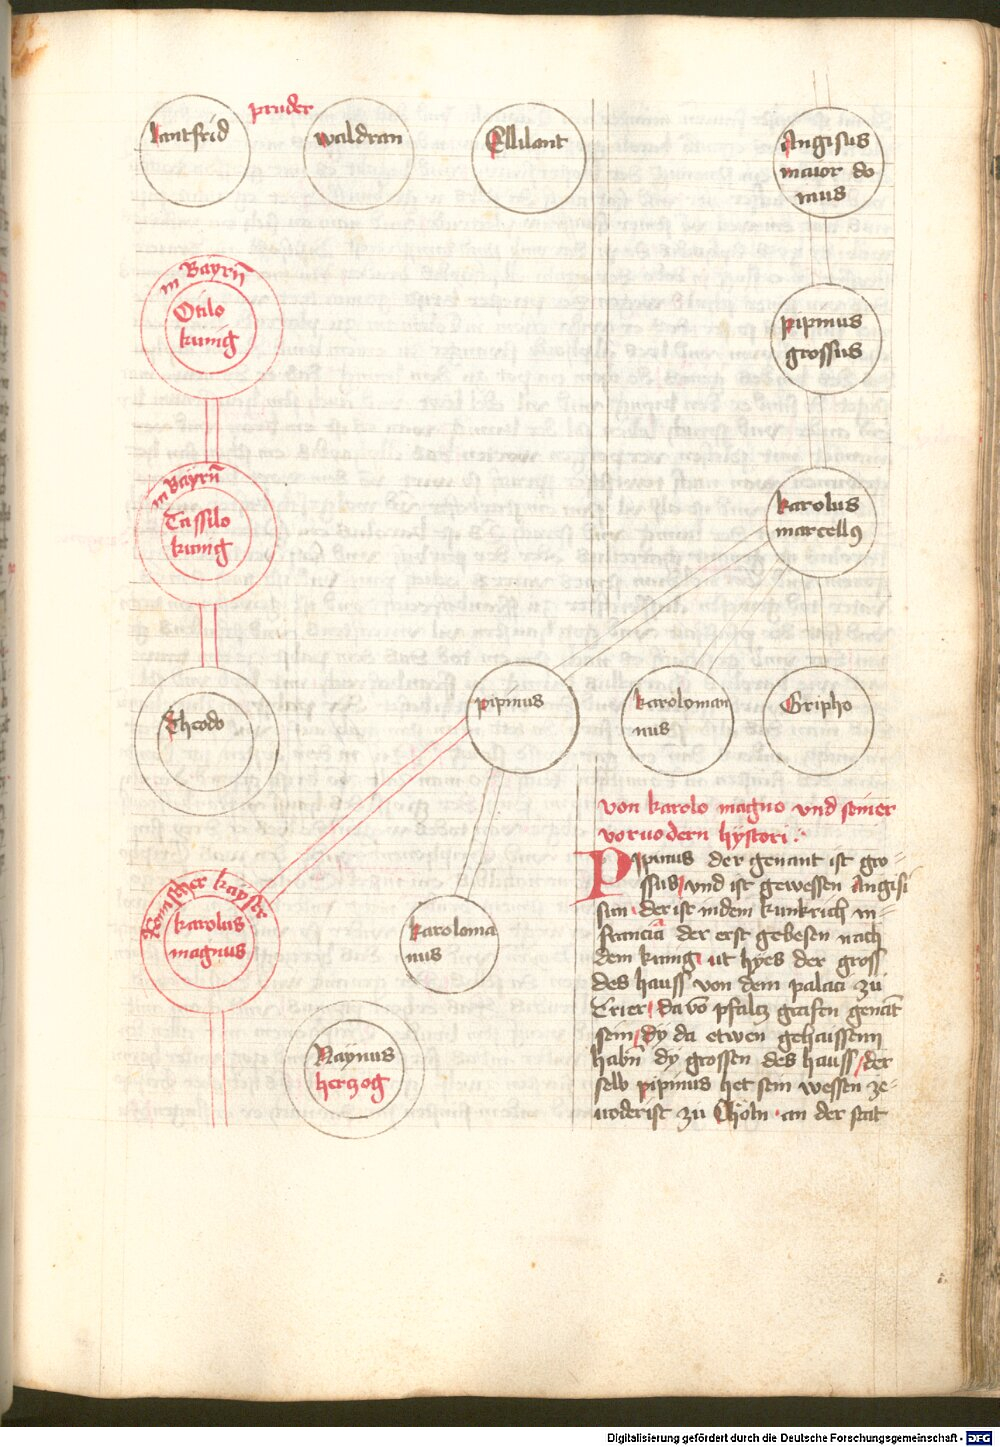 lantfrid
pruder
waldran
Ellilant
Angisus
maior do
mus
in Bayrn̄
Otilo
kunig
pipinus
grossus
in Bayrn̄
Tassilo
kunig
karolus
marcellꝯ
Theodo
pipinus
karoloman
nus
Gripho
von karolo magno vnd seiner
voruodern hystori :·
Pipinus der genant ist gro-
ssus / vnd ist gewessen Angisi
sun · der ist in dem kunkrich in
francia der erst gebesen nach
dem kunig / ut hyes der gross
des hauss von dem palaci zu
Trier / da võ pfaltz grafen genāt
sein / dy da etwen gehaissenn
habn̄ dy grossen des hauss / der
selb pipinus het sein wessen ze-
uoderist zu Chöln · an der stat
Remischer kayser
karolus
magnus
karoloma
nus
Naymus
herzog
Digitalisierung gefördert durch die Deutsche Forschungsgemeinschaft - DFG